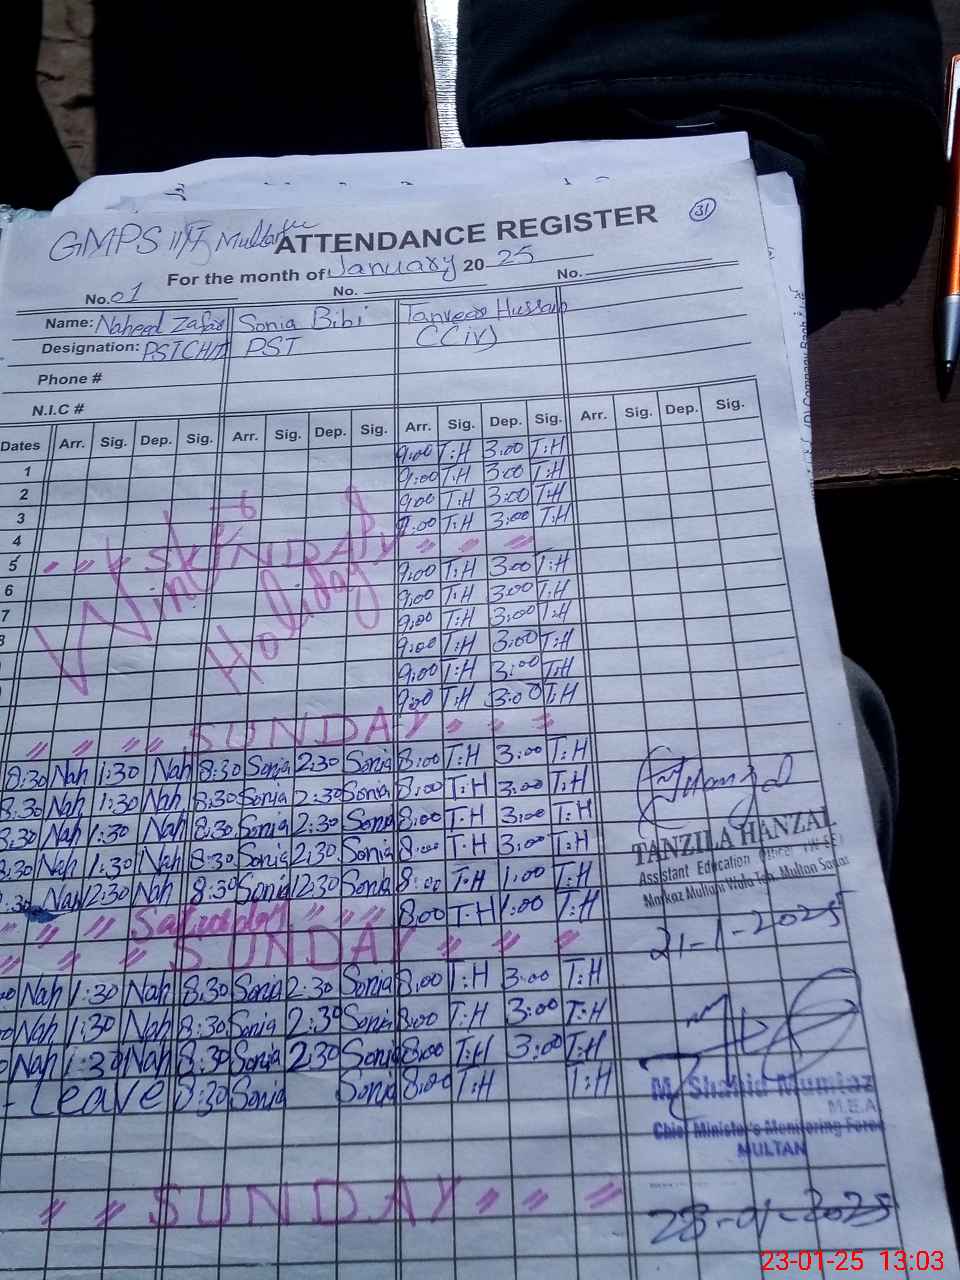 GMPS
ATTENDANCE REGISTER
31
For the month of January 20 25
No. 01 No. No.
Name: Naheed Zafar Sonia Bibi Tanveer Hussain
Designation: PST PST C(iv)
Phone #
N.I.C #
Dates Arr. Sig. Dep. Sig. Arr. Sig. Dep. Sig. Arr. Sig. Dep. Sig. Arr. Sig. Dep. Sig.
1 9:00 T:H 3:00 T:H
2 9:00 T:H 3:00 T:H
3 9:00 T:H 3:00 T:H
4 9:00 T:H 3:00 T:H
5 " " SUNDAY " " "
6 9:00 T:H 3:00 T:H
7 9:00 T:H 3:00 T:H
8 9:00 T:H 3:00 T:H
9:00 T:H 3:00 T:H
9:00 T:H 3:00 T:H
9:00 T:H 3:00 T:H
Winter Holidays
" " " SUNDAY " " "
8:30 Nah 1:30 Nah 8:30 Sonia 2:30 Sonia 8:00 T:H 3:00 T:H
8:30 Nah 1:30 Nah 8:30 Sonia 2:30 Sonia 8:00 T:H 3:00 T:H
8:30 Nah 1:30 Nah 8:30 Sonia 2:30 Sonia 8:00 T:H 3:00 T:H
8:30 Nah 1:30 Nah 8:30 Sonia 2:30 Sonia 8:00 T:H 3:00 T:H
Nah 12:30 Nah 8:30 Sonia 12:30 Sonia 8:00 T:H 1:00 T:H
" " Saturday " " " 8:00 T:H 1:00 T:H
" " " SUNDAY " " "
Nah 1:30 Nah 8:30 Sonia 2:30 Sonia 8:00 T:H 3:00 T:H
Nah 1:30 Nah 8:30 Sonia 2:30 Sonia 8:00 T:H 3:00 T:H
Nah 1:30 Nah 8:30 Sonia 2:30 Sonia 8:00 T:H 3:00 T:H
Leave 8:30 Sonia Sonia 8:00 T:H T:H
" " SUNDAY " " "
TANZILA HANZAL
Assistant Education Officer (W-EE)
Markaz Multani Wala Teh. Multan Sadar
21-1-2025
M. Shahid Mumtaz
M.E.A
Chief Minister's Monitoring Force
MULTAN
23-01-2025
23-01-25 13:03